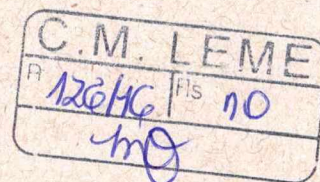 C.M. LEME
P 126/16 Fls 10